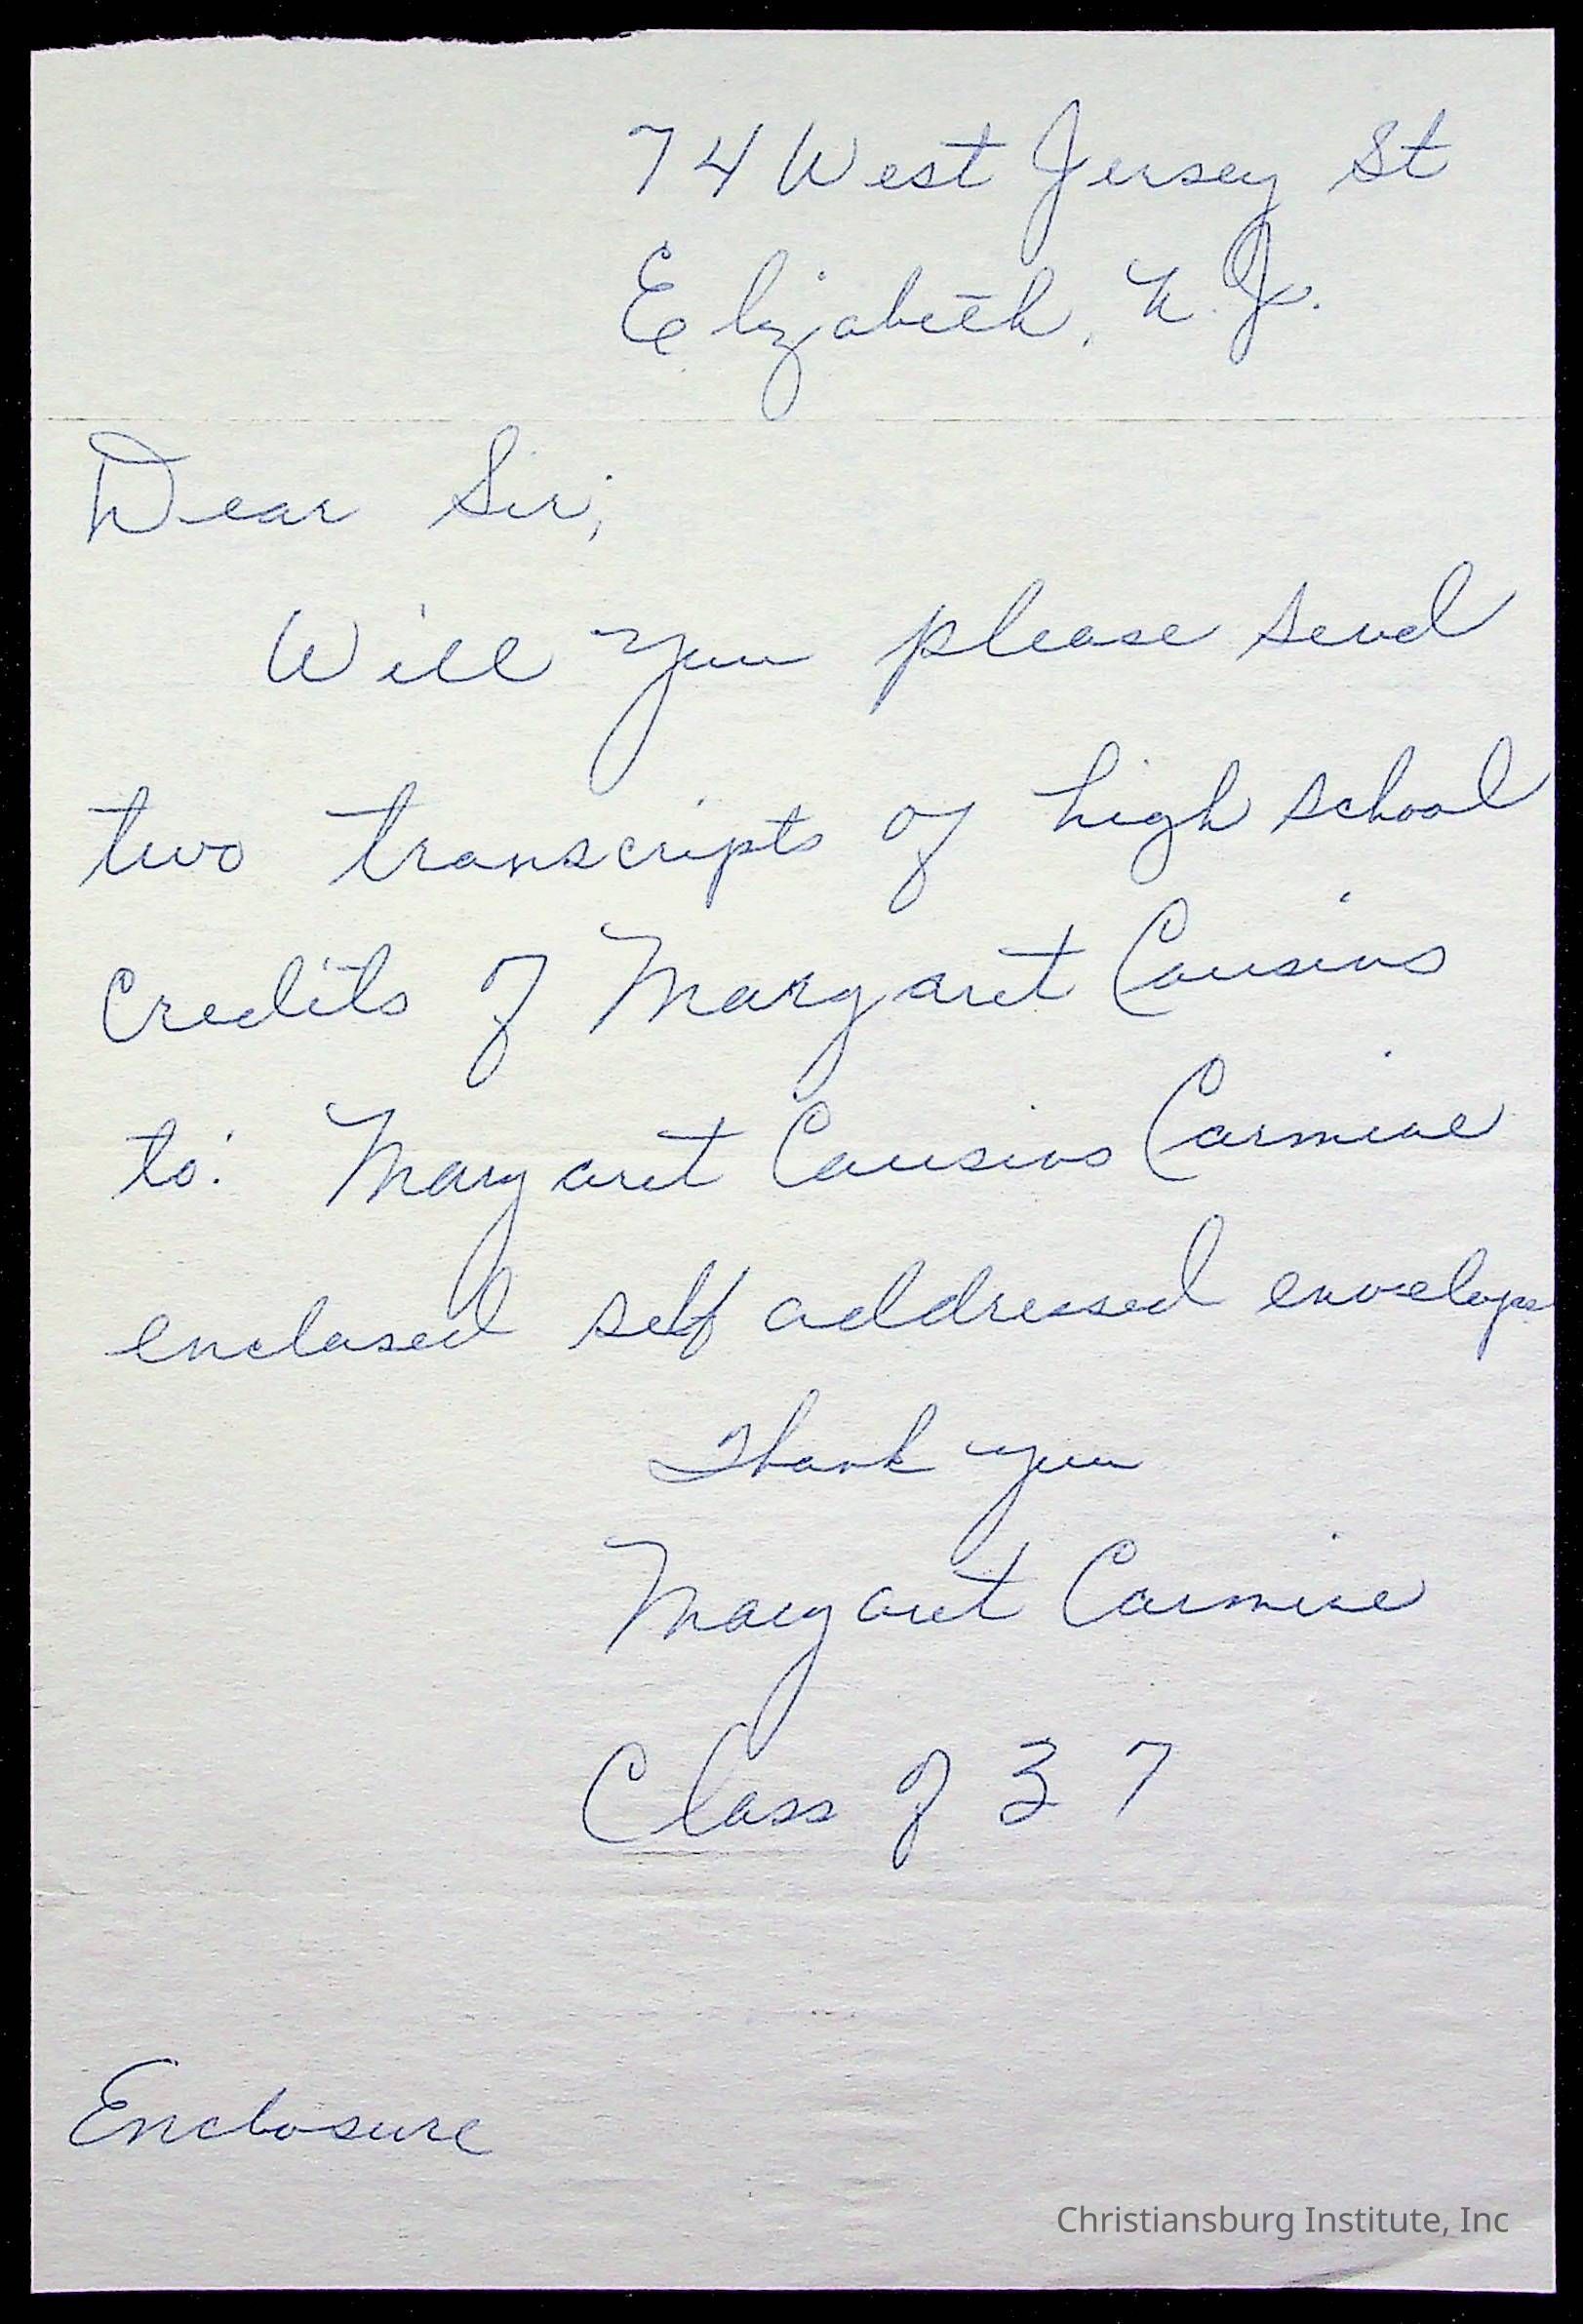 74 West Jersey St
Elizabeth, N.J.
Dear Sir;
Will you please send
two transcripts of high school
Credits of Margaret Cousins
to: Margaret Cousins Carmine
enclosed self addressed envelope
Thank you
Margaret Carmine
Class of 37
Enclosure
Christiansburg Institute, Inc